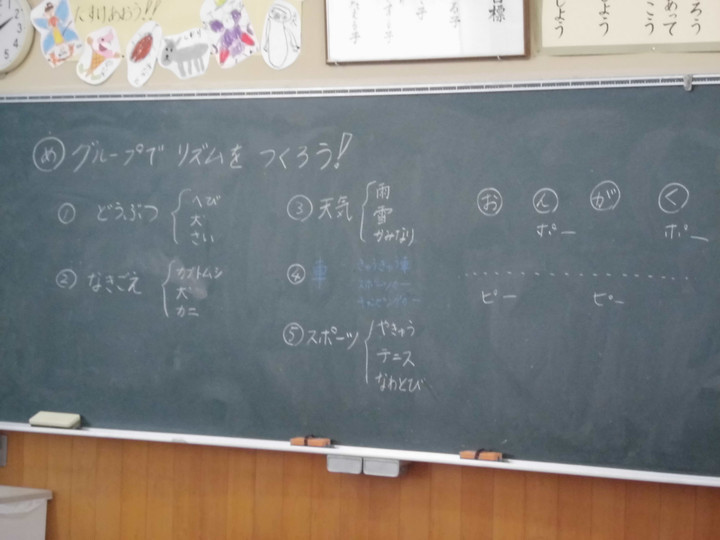 たすけあおう!!
目標
る子
する子
なる子
ろう
あって
こう
よう
しよう
め グループで リズムを つくろう!
① どうぶつ
へび
犬
さい
② なきごえ
カブトムシ
犬
カニ
③ 天気
雨
雪
かみなり
④ 車
きゅうきゅう車
⑤ スポーツ
やきゅう
テニス
なわとび
お ん が く
ポー ポー
ピー ピー